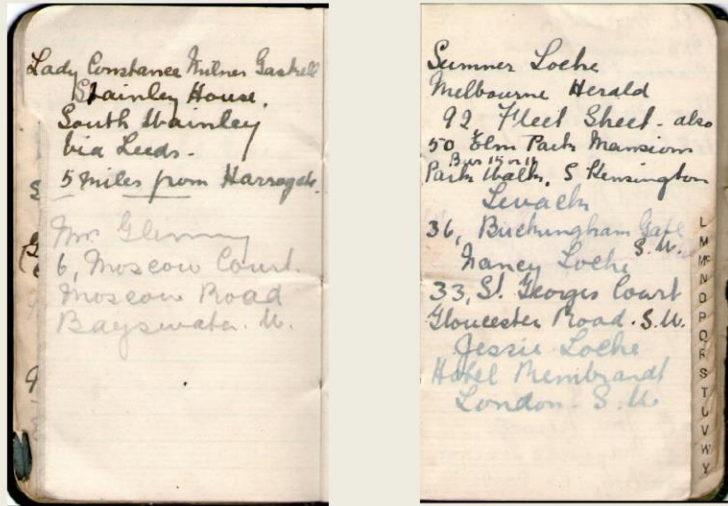 Lady Constance Milner Gaskell
Stainley House,
South Stainley
via Leeds.
5 miles from Harrogate.
Mrs Glenny
6, Moscow Court.
Moscow Road
Bayswater. W.
Sumner Locke
Melbourne Herald
92 Fleet Street - also
50 Elm Park Mansions
Bus 14 or 19
Park Walk, S Kensington
Levack
36, Buckingham Gate
S.W.
Nancy Locke
33, St. Georges Court
Gloucester Road. S.W.
Jessie Locke
Hotel Rembrandt
London. S.W.
L
M
Mc
N
O
P
Q
R
S
T
U
V
W
Y